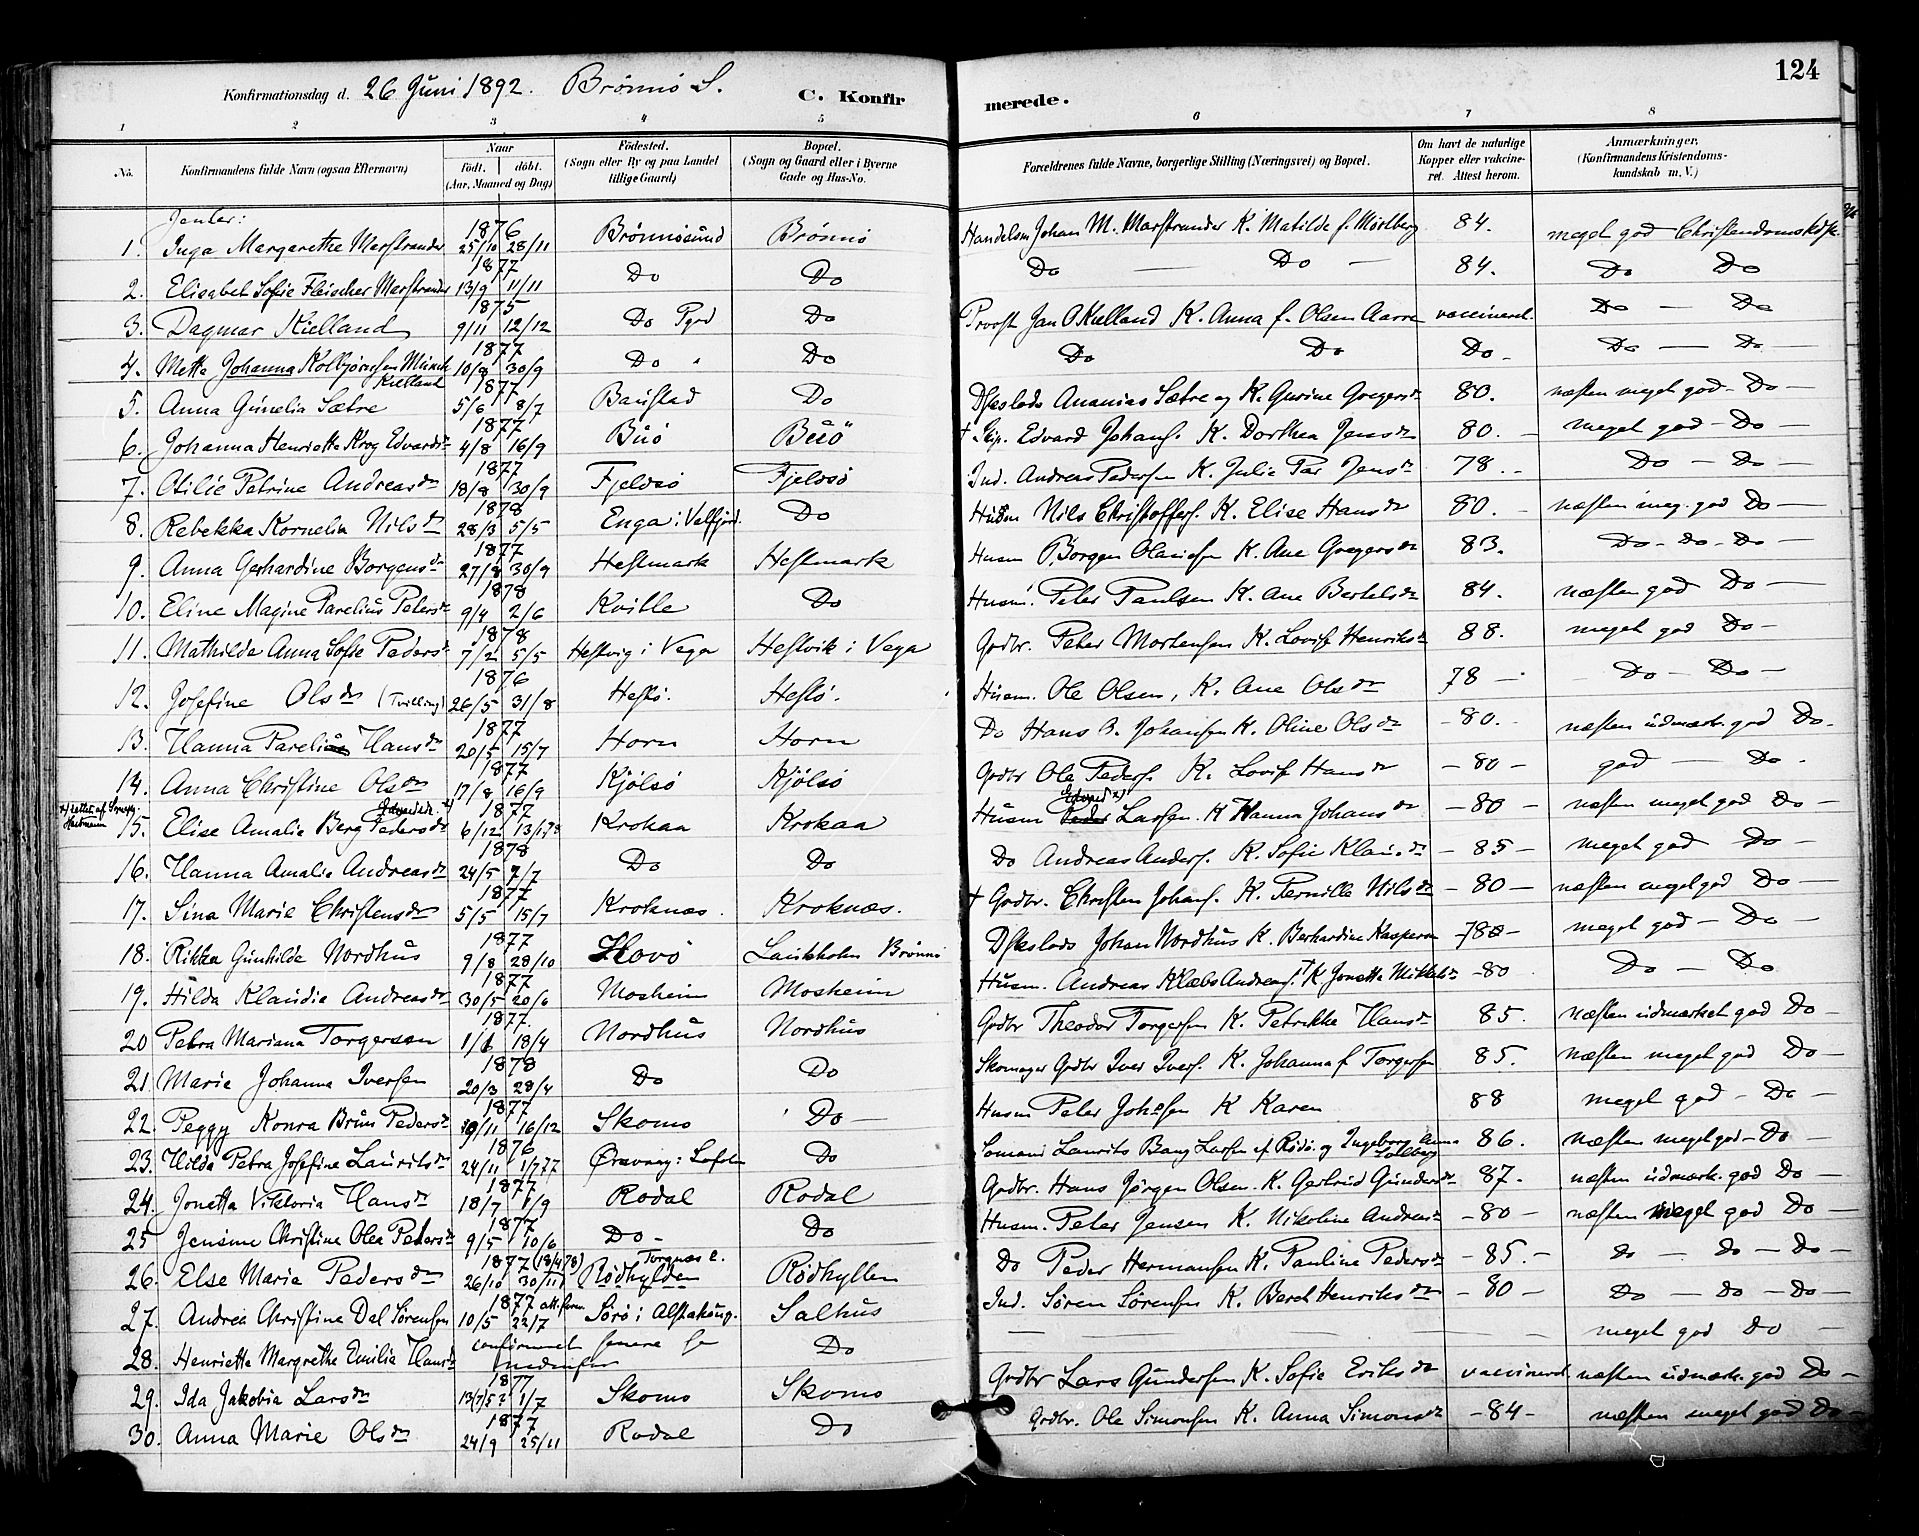 124
Konfirmationsdag d. 26 Juni 1892. Brönnö S. C. Konfirmerede.
1 2 3 4 5 6 7 8
No. Konfirmandens fulde Navn (ogsaa Efternavn) Naar födt. döbt. (Aar, Maaned og Dag) Födested. (Sogn eller By og paa Landet tillige Gaard) Bopæl. (Sogn og Gaard eller i Byerne Gade og Hus-No. Forældrenes fulde Navne, borgerlige Stilling (Næringsvei) og Bopæl. Om havt de naturlige Kopper eller vakcineret. Attest herom. Anmærkninger. (Konfirmandens Kristendomskundskab m. V.)
Jenter:
1. Inga Margarethe Marstrander 1876 25/10 28/11 Brönnösund Brönnö Handelsm Johan M. Marstrander K. Matilde f. 84. meget god Christendomskdsk.
2. Elisabet Sofie Fleischer Marstrander 1877 13/9 11/11 Do Do Do — Do — 84. Do Do
3. Dagmar Kielland 1875 9/11 12/12 Do Pgd Do Provst Jan O Kielland K. Anna f. Olsen Aarre vaccineret. Do — Do
4. Mette Johanna Kolbjørnsen Münch Kielland 1877 10/8 30/9 Do " Do Do Do Do - Do — Do —
5. Anna Gunelia Sætre 1877 5/6 8/7 Baustad Do Ananias Sætre og K. Gurine Gregersdr 80. næsten meget god - Do —
6. Johanna Henriette Krog Edvardsdr 1877 4/8 16/9 Buö Buö † Edvard Johans. K. Dorthea Jensdr 80. — meget god - Do —
7. Otilie Petrine Andreasdr 1877 18/8 30/9 Fjeldsö Fjeldsö Ind. Andreas Pedersen K. Julie Jensdr 78. - Do — Do —
8. Rebekka Kornelia Nilsdr 1878 28/3 5/5 Enga i Velfjord. Do Husm Nils Christoffers. K. Elise Hansdr 80. - næsten meg. god Do —
9. Anna Gerhardine Borgensdr 1877 27/8 30/9 Hestmark Hestmark Husm Borgen K. Ane Gregersdr 83. Do - Do - Do —
10. Eline Magine Parelius Petersdr 1878 9/4 2/6 Kville Do Husm. Peter Paulsen K. Ane Bertelsdr 84. næsten god Do —
11. Mathilda Anna Sofie Pedersdr 1878 7/2 5/5 Hestvig i Vega Hestvik i Vega Grdbr. Peter Mortensen K. Lovise Henriksdr 88. meget god Do -
12. Josefine Olsdr (Tvilling) 1876 26/5 31/8 Hestö. Hestö. Husm. Ole Olsen, K. Ane Olsdr 78 — Do — Do —
13. Hanna Hansdr 1877 20/5 15/7 Horn Horn Do Hans B. Johansen K. Oline Olsdr - 80. - næsten udmærk. god Do -
14. Anna Christine Olsdr 1877 17/8 16/9 Kjölsö Kjölsö Grdbr Ole Peders. K. Lovise Hansdr - 80 - god — Do -
15. Elise Amalie Berg Pedersdr 1877 6/12 Krokaa Krokaa Husm Edvard x) Larsen. K Hanna Johansdr - 80 - næsten meget god Do —
16. Hanna Amalie Andreasdr 1878 24/5 7/7 Do Do Do Andreas Anders. K. Sofie - 85 - meget god Do —
17. Sina Marie Christensdr 1877 5/5 15/7 Kroknæs. Kroknæs. † Grdbr. Christen Johans. K. Pernille Nilsdr - 80 — næsten meget god Do —
18. Rikka Gunhilde Nordhus 1877 9/8 28/10 Hovö Brönnö Johan Nordhus K. Berhardine - 78 - meget god — Do —
19. Hilda Klaudia Andreasdr 1877 30/5 20/6 Mosheim Mosheim Husm. Andreas Klæbo Andreas. † K Jonetta - 80 Do — Do
20 Petra Mariana Torgersen 1877. 18/4 Nordhus Nordhus Grdbr Theodor Torgersen K. Petrikke Hansdr 85. næsten udmærket god Do —
21. Marie Johanna Iversen 1878 20/3 28/4 Do Do Skomager Grdbr Iver Ivers. K. Johanna f Torgersen 85. næsten meget god Do —
22. Peggy Konra Brun Pedersdr 1877 16/12 Skomo Do — Husm Peter K Karen 88 meget god - Do —
23. Hilda Petra Josefine Lauritsdr 1876 24/11 1/7 77 Do Laurits Bang Larsen af Rödö og Ingeborg Anna 86. næsten meget god - Do —
24. Jonetta Viktoria Hansdr 1877 18/7 1/9 Rodal Rodal Grdbr. Hans Jørgen Olsen. K. Gertrud Gundersdr 87. næsten udmærk. god Do —
25 Jensine Christine Olea Petersdr 1877 9/5 10/6 Do - Do Husm. Peter Jensen K. Nikoline Andreasdr - 80 - næsten meget god Do —
26. Else Marie Pedersdr 1877 26/10 30/11 (18/4 78) Rødhylden Rødhyllen Do Peder Hermansen K. Pauline Pedersdr - 85. - Do — Do — Do —
27. Andrea Christine Dal Sørensen 1877 10/5 22/7 Sørö i Alstahaug. Salhus Ind. Søren Sørensen K. Beret Henriksdr - 80 - Do — Do — Do —
28. Henrietta Margrethe Emilia Hansdr confirmeret senere se nedenfor Do — — — — meget god Do —
29. Ida Jakobia Larsdr 1877 1/7 Skomo Skomo Grdbr Lars Gundersen K. Sofie Eriksdr vaccineret næsten udmærk. god Do —
30. Anna Marie Olsdr 1877 24/9 25/11 Rodal Do Grdbr. Ole Simonsen K. Anna Simonsdr - 84 - næsten meget god Do —